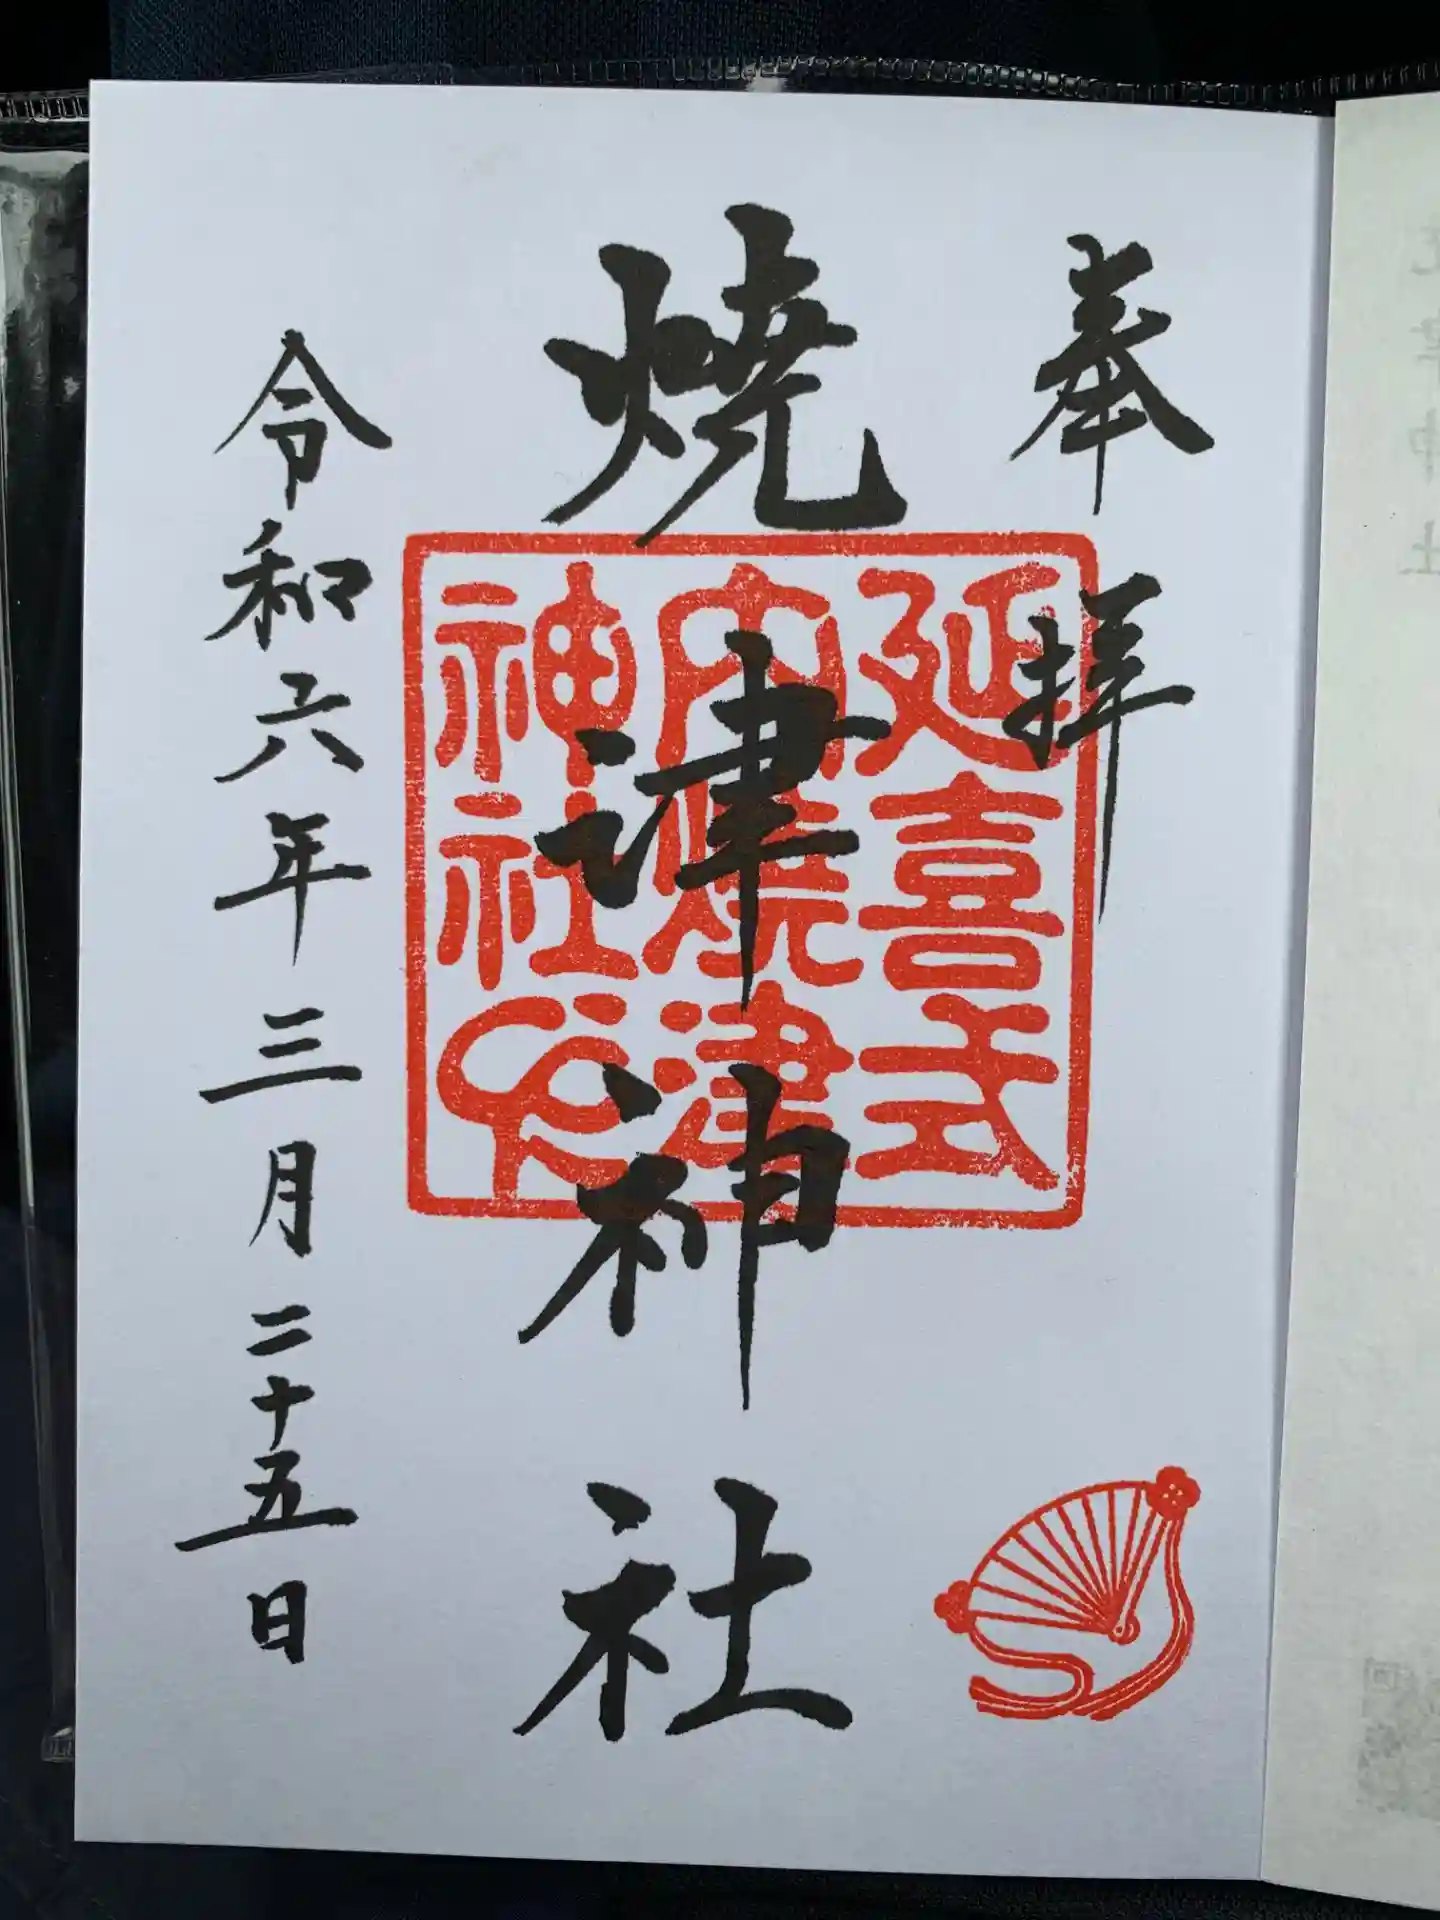 奉拝
延喜式
内焼津
神社之印
焼津神社
令和六年三月二十五日